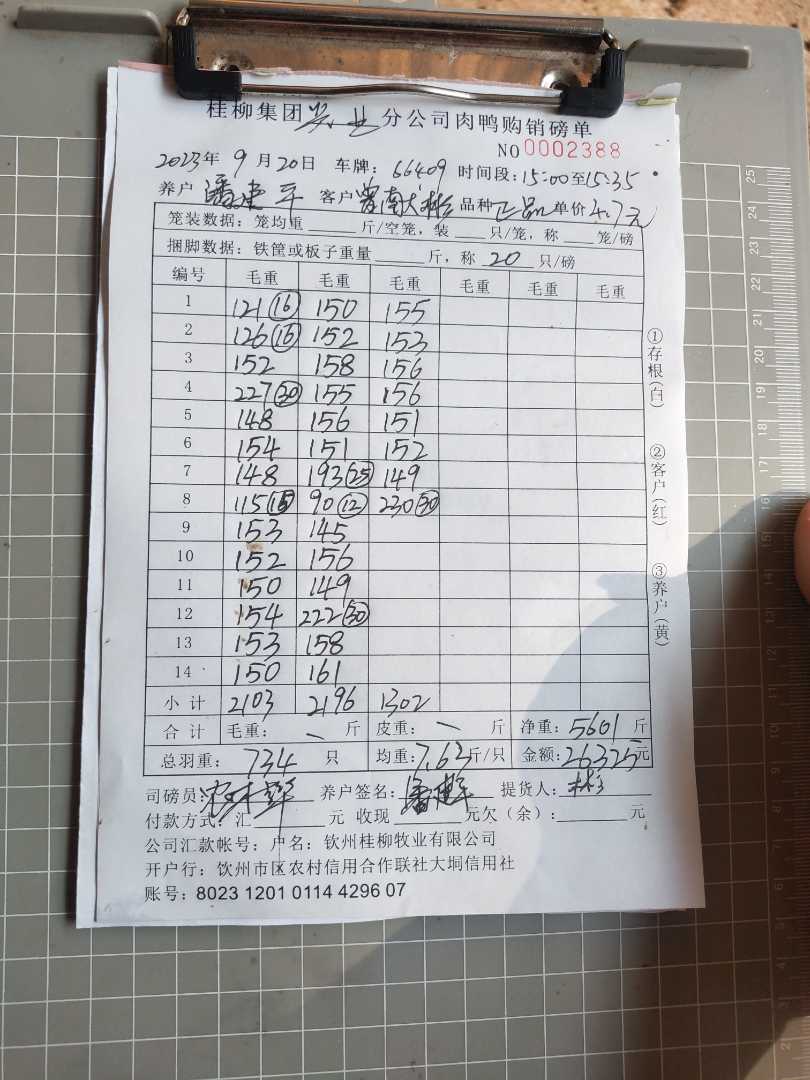 桂柳集团兴业分公司肉鸭购销磅单
NO 0002388
2023年 9月20日 车牌: 66409 时间段: 15:00至15:35
养户 潘建平 客户 曾南大彬 品种 正品 单价 4.7元
笼装数据: 笼均重 斤/空笼, 装 只/笼, 称 笼/磅
捆脚数据: 铁筐或板子重量 斤, 称 20 只/磅
编号 毛重 毛重 毛重 毛重 毛重 毛重
1 121(16) 150 155
2 126 152 153
3 152 158 156
4 227(30) 155 156
5 148 156 151
6 154 151 152
7 148 193(25) 149
8 115(15) 90(12) 230(30)
9 153 145
10 152 156
11 150 149
12 154 222(30)
13 153 158
14 150 161
小计 2103 2196 1302
合计 毛重: — 斤 皮重: — 斤 净重: 5601 斤
总羽重: 734 只 均重: 7.63斤/只 金额: 26325元
司磅员: 养户签名: 提货人: 彬
付款方式: 汇 元 收现 元欠(余): 元
公司汇款帐号: 户名: 钦州桂柳牧业有限公司
开户行: 饮州市区农村信用合作联社大垌信用社
账号: 8023 1201 0114 4296 07
①存根(白)
②客户(红)
③养户(黄)